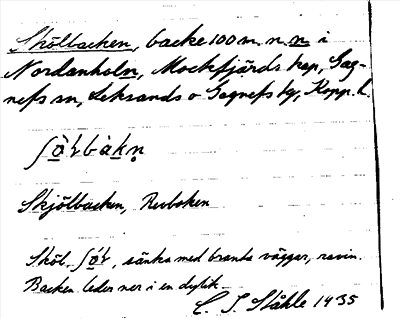 Skölbacken, backe 100 m. n. n. i
Nordanholn, Mockfjärds kap, Gag-
nefs sn, Leksands o Gagnefs tg, Kopp. l.
ʃö̀ɽbàkn̥
Skjölbacken, Revboken
Sköl, ʃöɽ, sänka med branta väggar, ravin.
Backen leder ner i en dylik
C. I. Ståhle 1935